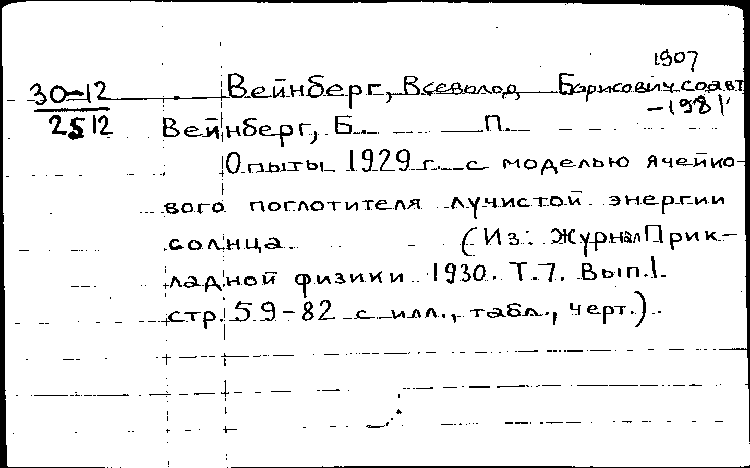 1907
30-12 Вейнберг, Всеволод Борисович соавт
-1981
2512 Вейнберг, Б. П.
Опыты 1929 г. с моделью ячейко-
вого поглотителя лучистой энергии
солнца. (Из: Журнал Прик-
ладной физики 1930. Т.7. Вып.1.
стр. 59-82 с илл., табл., черт.).